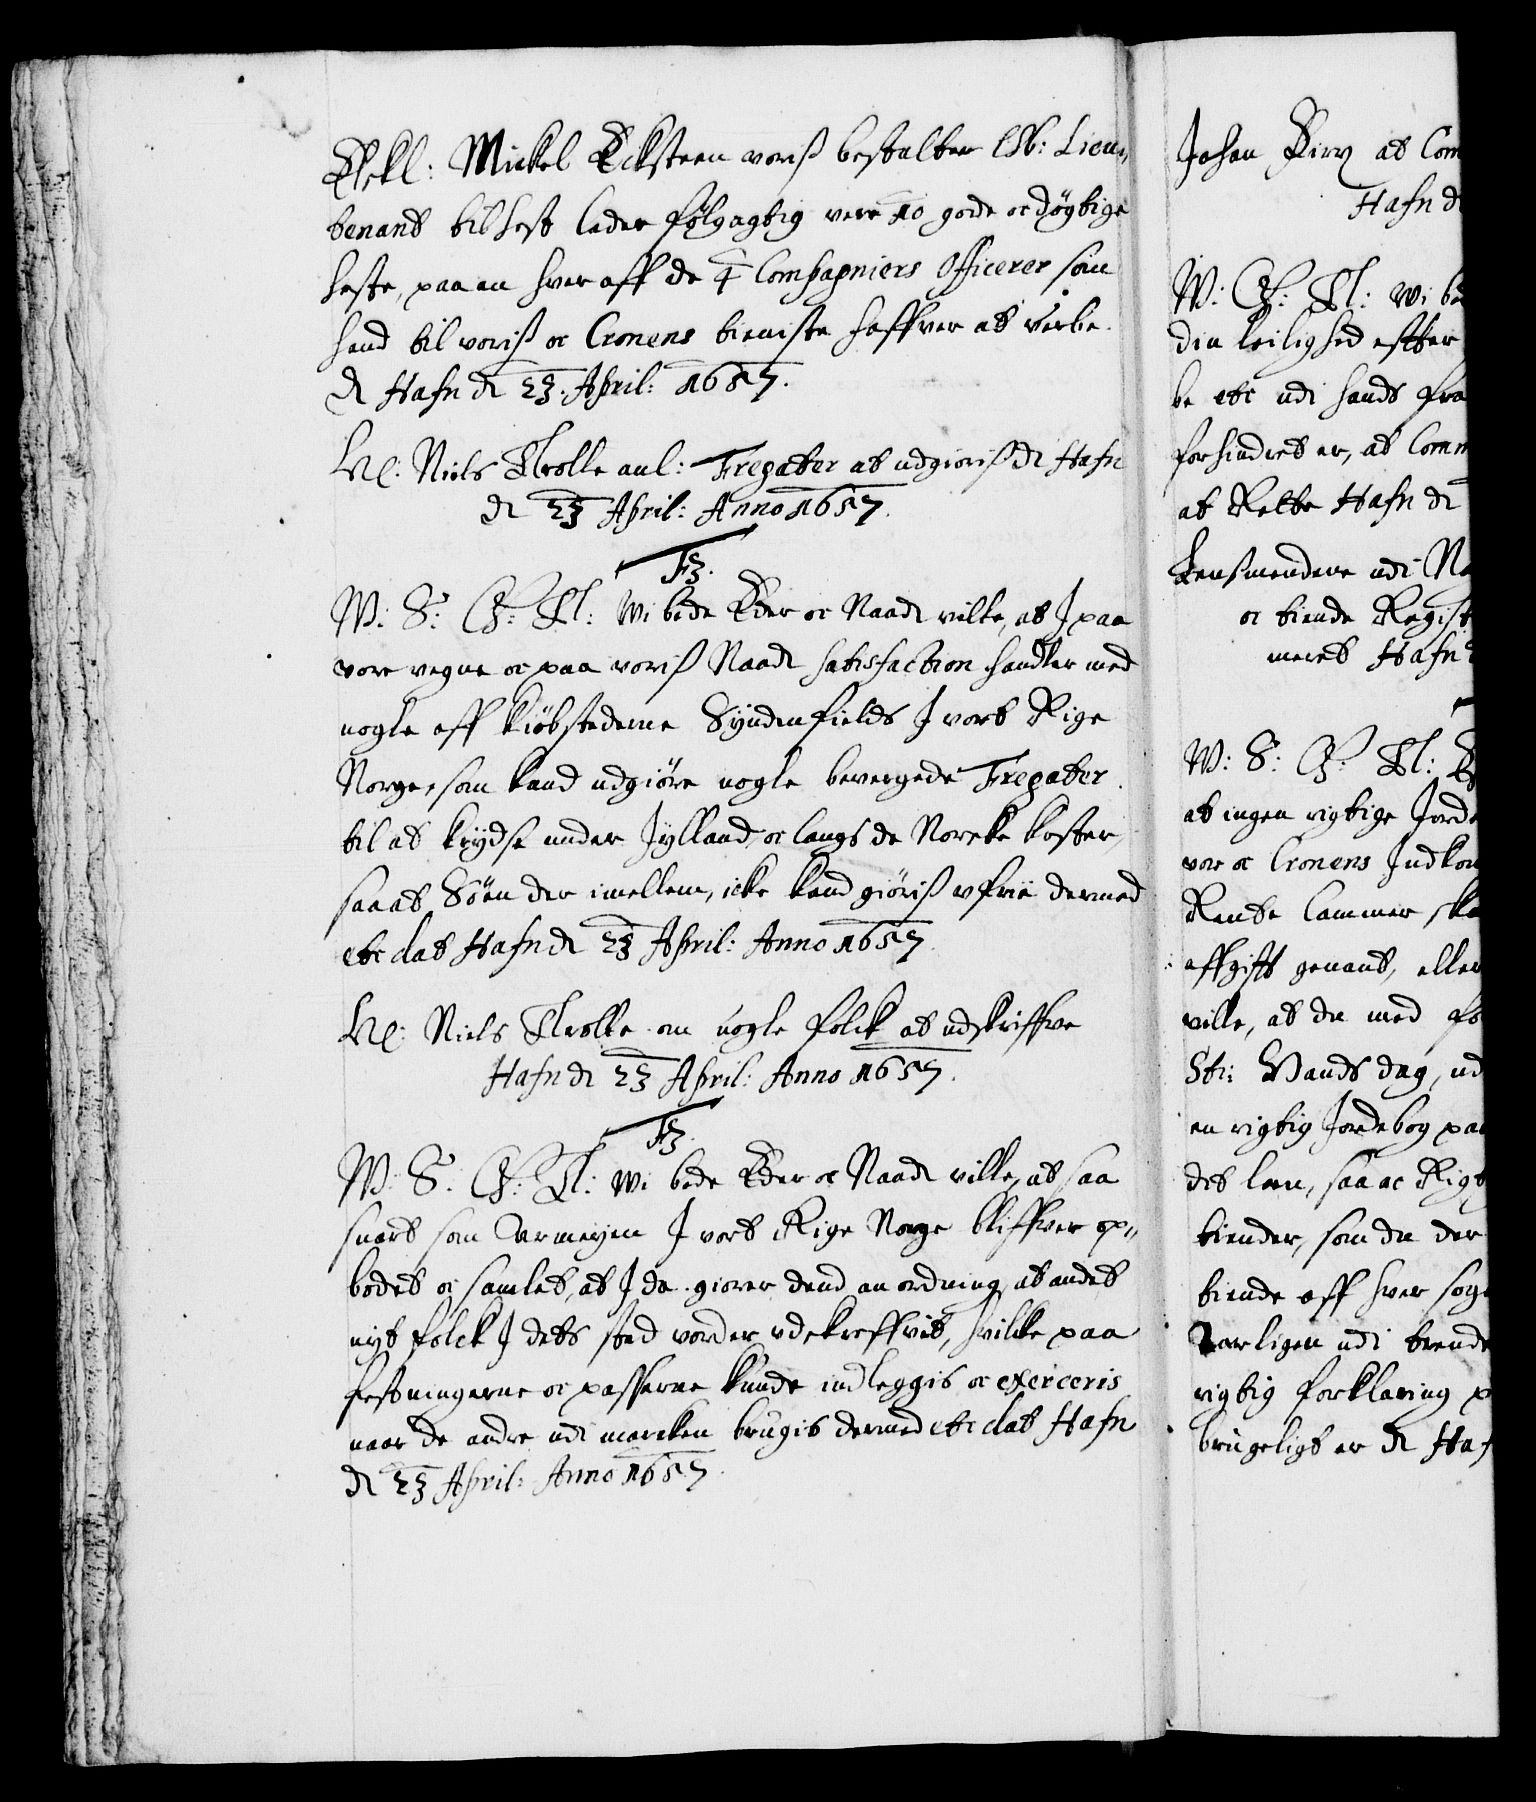 Elskl: Mickel Ecksteen voriß bestalter Ob: Lieu„
tenant til hest lader følgagtig vere 10 gode oc døgtige
heste, paa en hver aff de 4 Compagniers Officerer som
hand til voriß oc Cronens tieniste haffver at verbe.
d Hafn d 23. April: 1657.
He: Niels Trolle anl: Fregatter at udgiøriß d Hafn
d 23 April: Anno 1657.
F3.
W: S: G: T: Wi bede Eder oc Naadl ville, at J paa
vore vegne oc paa voriß Naadl satisfaction handler med
nogle aff kiøbstederne Syndenfields J vort Rige
Norge, som kand udgiøre nogle bevergede Fregatter
til at krydse under Jylland, oc langs de Norske koster,
saa at Søen der imellem, icke kand giøriß vfrii dermed
etc dat Hafn d 23 April: Anno 1657.
He: Niels Trolle om nogle folck at udskriffve
Hafn d 23 April: Anno 1657.
F3.
W: S: G: T: Wi bede Eder oc Naadl ville, at saa
snart som Armeyen J vort Rige Norge bliffver op„
bodet oc samlet, at J da giører dend anordning, at andet
nyt folck J dets sted vorder vdskreffvit, hvilke paa
festningerne oc passerne kunde indleggis oc exerceris
naar de andre udi marcken brugis dermed etc dat Hafn
d 23 April: Anno 1657.
Johan at Com
Hafn d
W: G: T: Wi be
din leilighed effter
be etc udi hands fra
forhindret er, at Comm
at Rette Hafn d
Lensmendene udi No
oc tiende Regist
meret Hafn
W: S: G: T:
at ingen rigtige Jorde
vor oc Cronens Jndkom
Rente Cammer ska
affgift genant, eller
ville, at du med fo
Sti: Hands dag, ud
en rigtig Jordebog paa
det len, saa oc Rigt
tiender, som du der
tiende aff hver sogn
varligen udi trende
rigtig forklaring p
brugeligt er d Haf